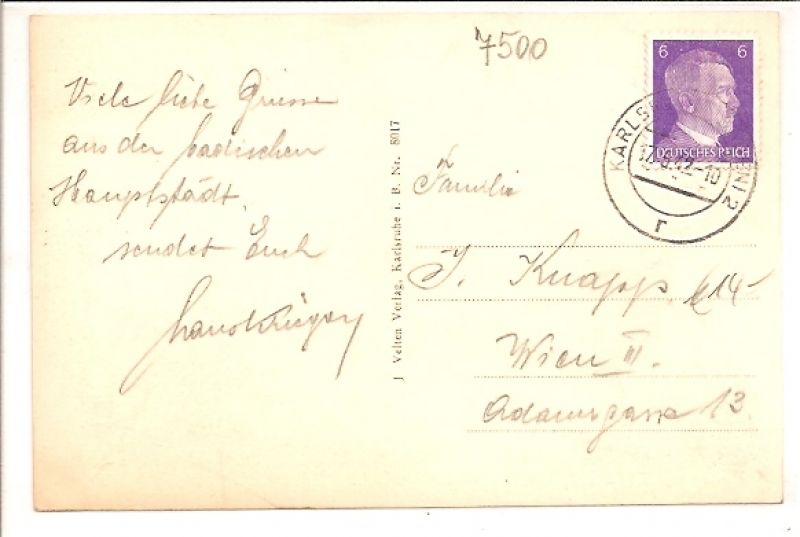 7500
Viele liebe Grüsse
aus der badischen
Hauptstadt
sendet Euch
J Velten Verlag, Karlsruhe i. B. Nr. 8017
6 6
DEUTSCHES REICH
KARLSRUHE 2
r
Familie
J. Knapp
14
Wien III.
Adamsgasse 13.